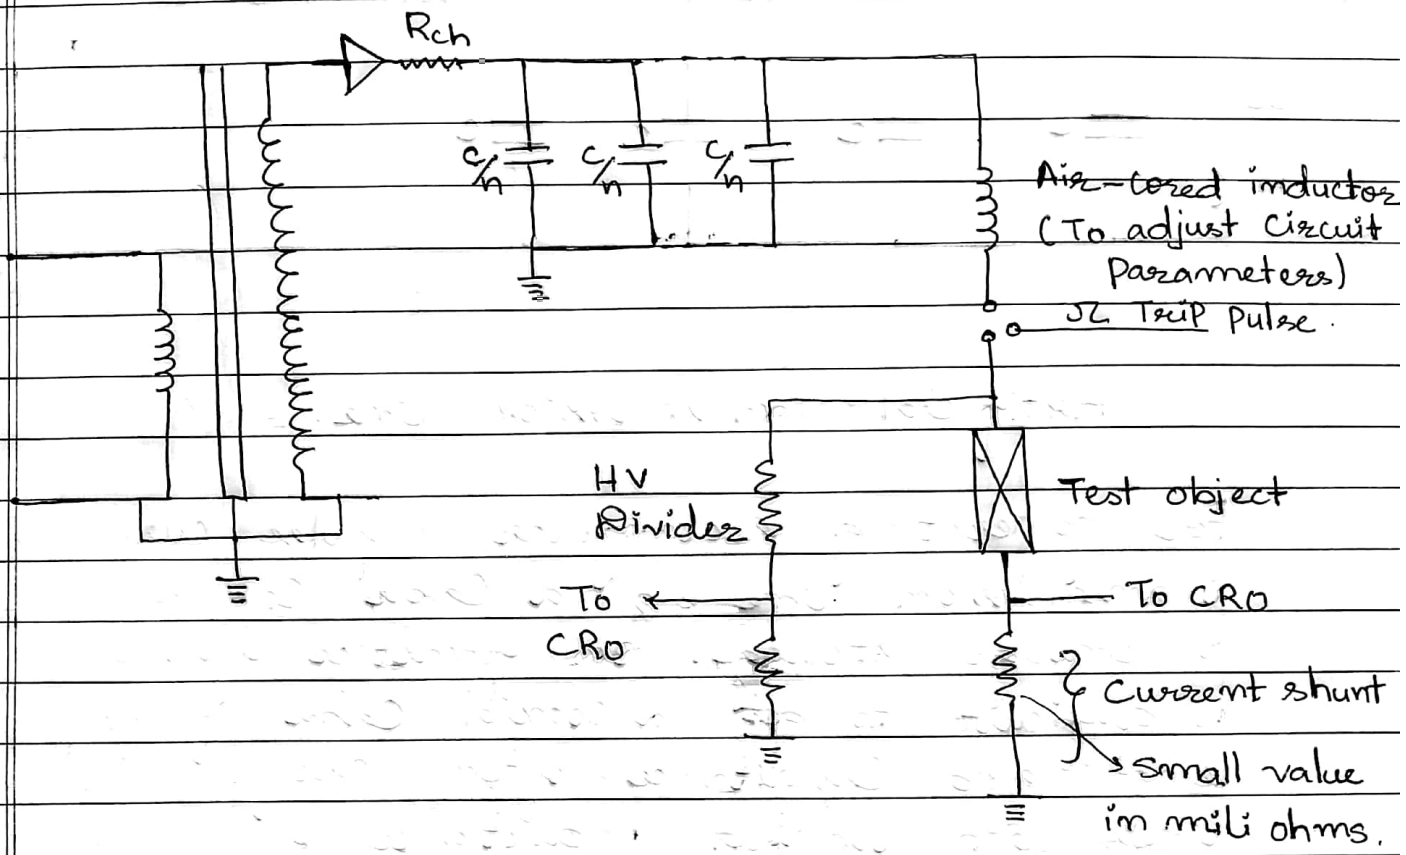 Rch
C/n C/n C/n
Air-cored inductor
(To adjust Circuit
Parameters)
Trip Pulse.
HV
Divider
Test object
To
CRO
To CRO
Current shunt
small value
in mili ohms.